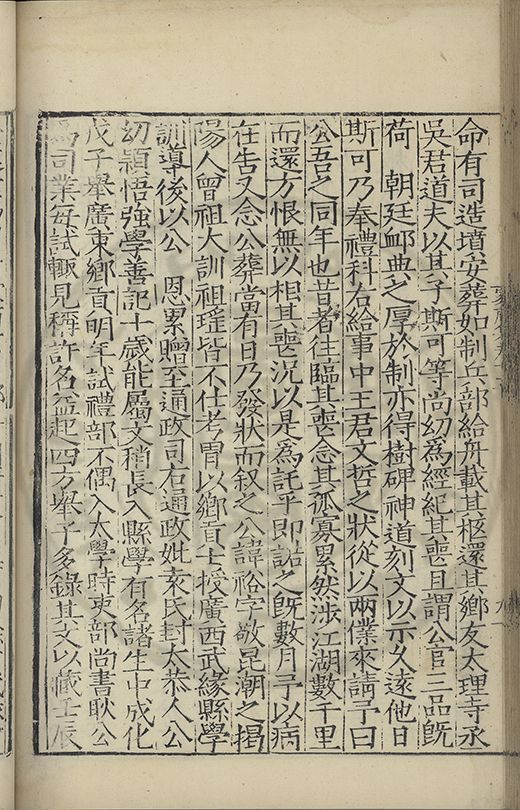 命有司造墳安葬如制兵部給舟載其柩還其鄉友太理寺丞
吳君道夫以其子斯可等尚幼為經紀其喪且謂公官三品旣
荷 朝廷䘏典之厚於制亦得樹碑神道刻文以示久遠他日
斯可乃奉禮科右給事中王君文哲之狀從以兩僕來請予曰
公吾之同年也昔者往臨其喪念其孤寡累然涉江湖數千里
而還方恨無以相其喪況以是爲託乎即諾之旣數月予以病
在告又念公葬當有日乃發狀而叙之公諱裕字敬昆潮之揭
陽人曾祖大訓祖瑤皆不仕老胃以鄉貢士授廣西武緣縣學
訓導後以公 恩累贈至通政司右通政妣袁氏封太恭人公
幼穎悟強學善記十歲能屬文稍長入縣學有名諸生中成化
戊子舉廣東鄉貢明年試禮部不偶入大學時吏部尚書耿公
爲司業每試輒見稱許名益起四方舉子多錄其文以藏壬辰